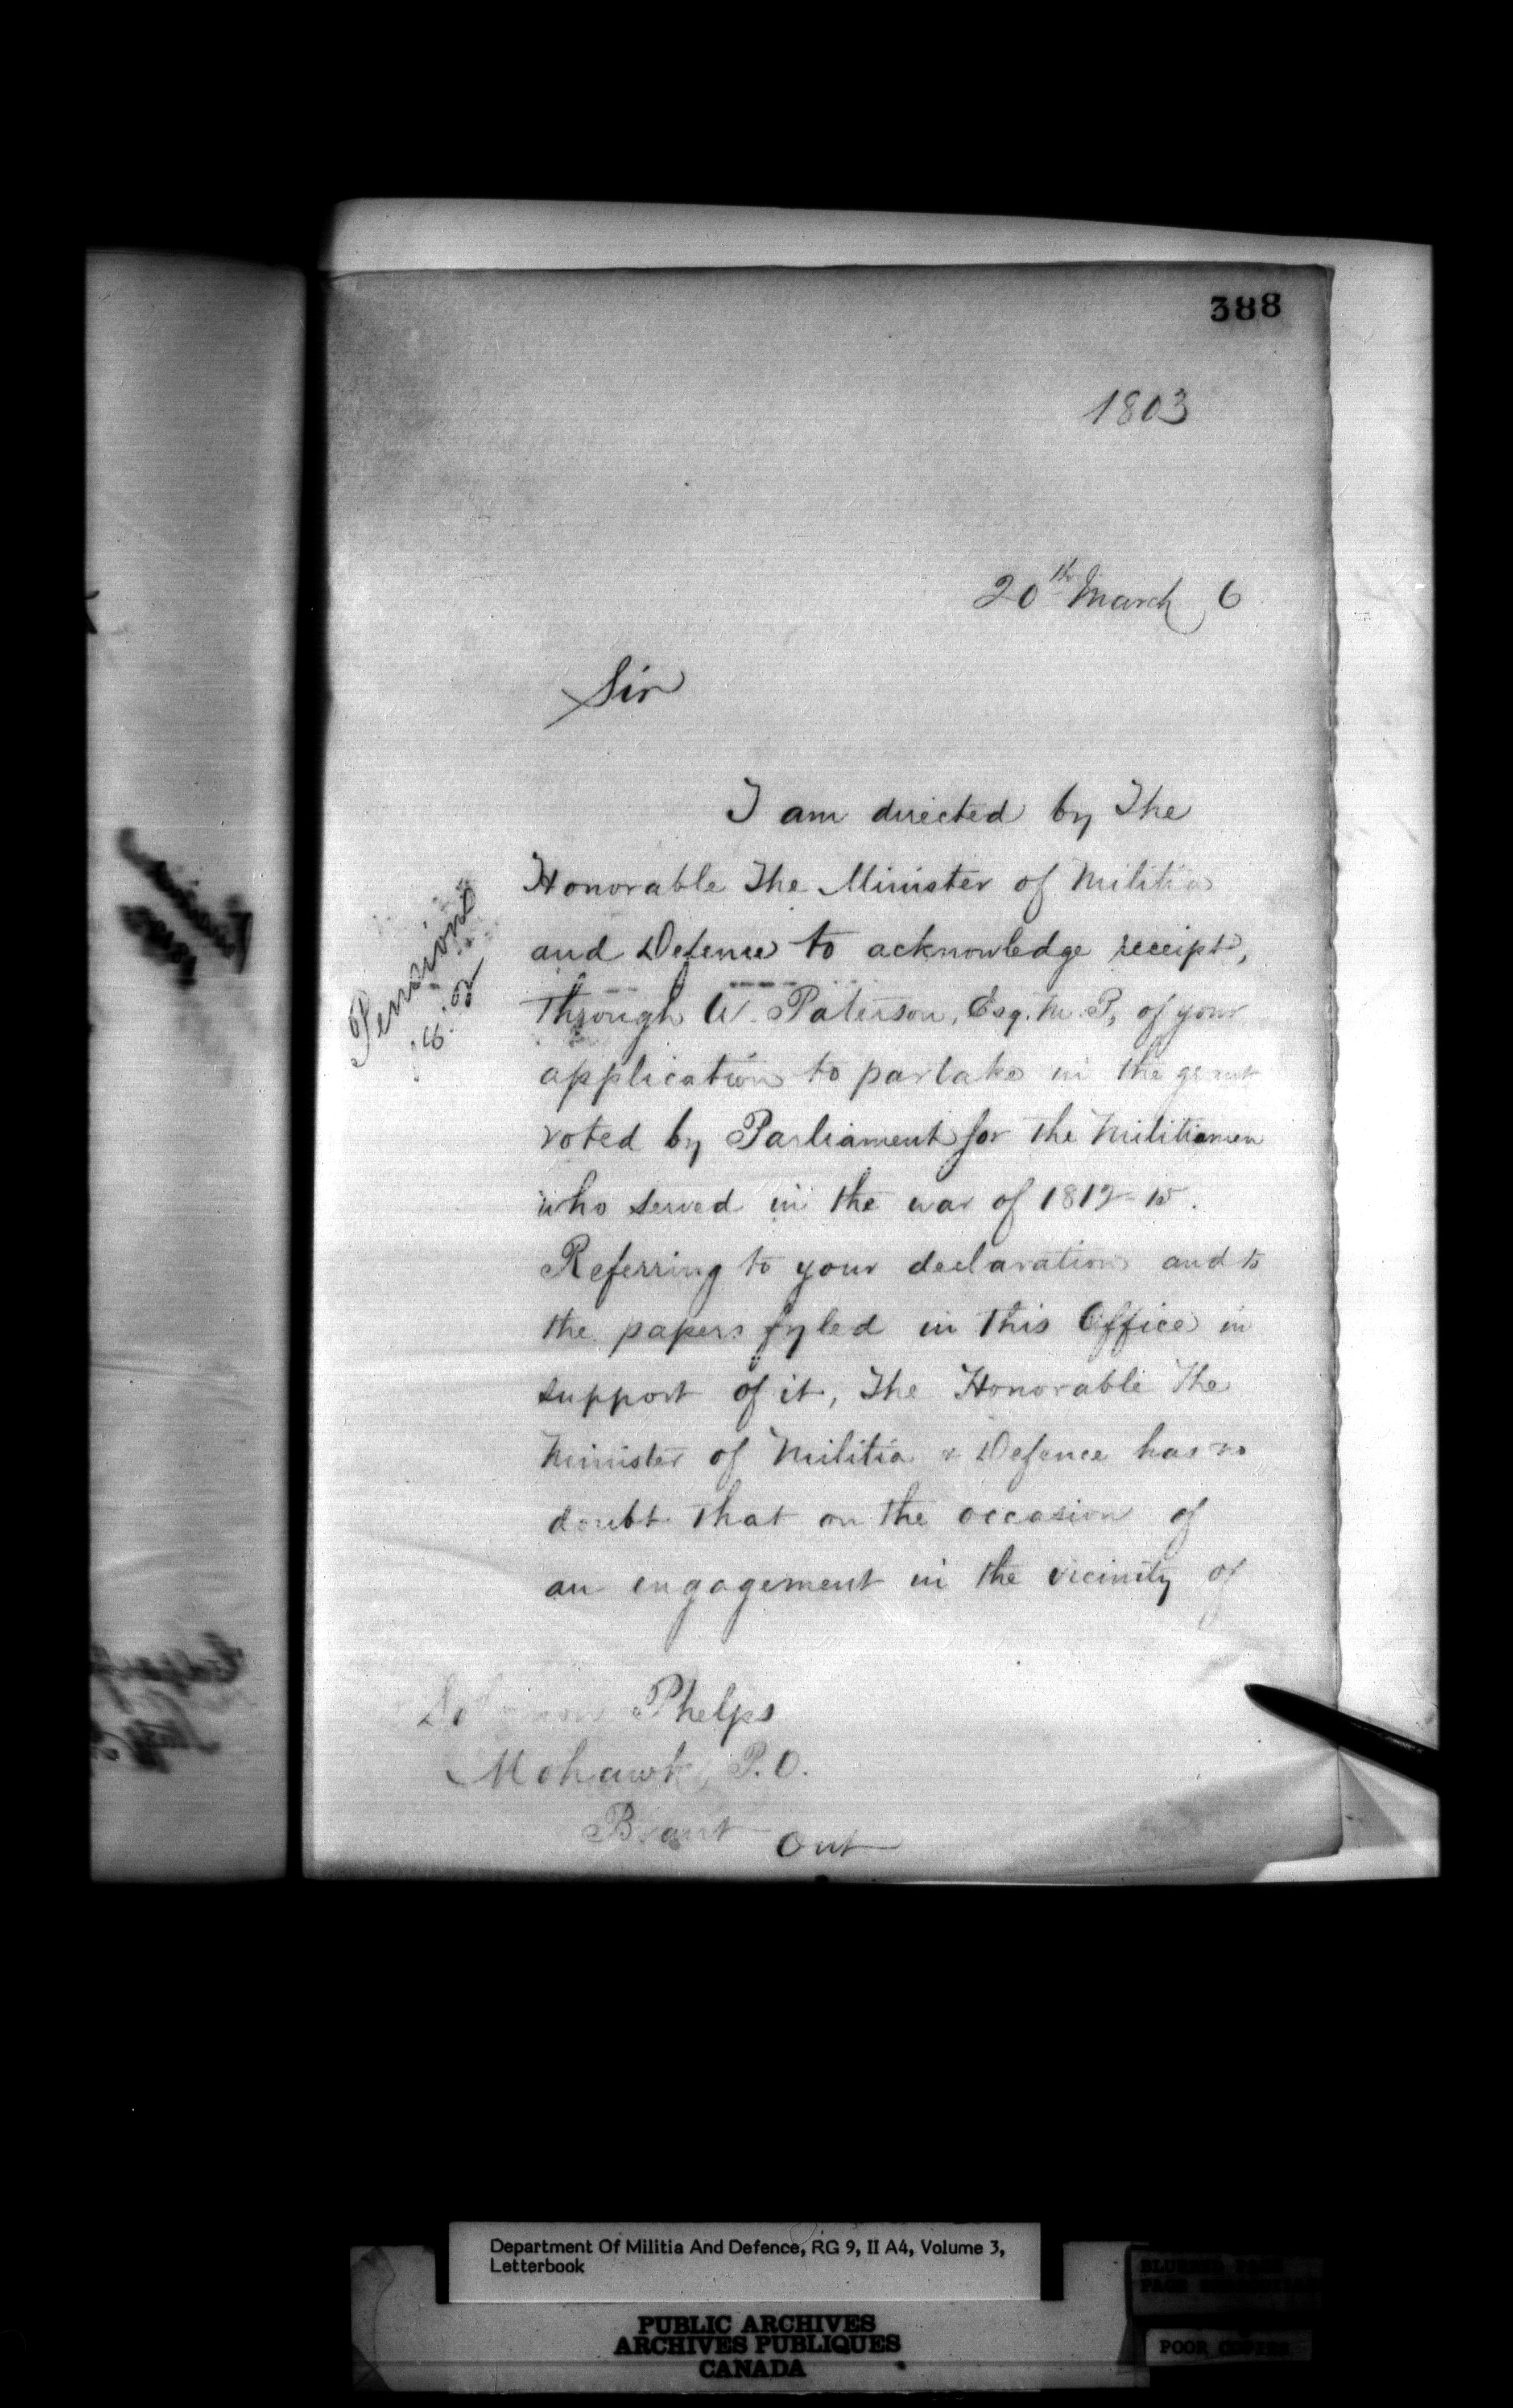 388
1803
20th March 6
Sir
I am directed by The
Honorable The Minister of Militia
and Defence to acknowledge receipt,
Through W. Paterson, Esq. M.P, of your
application to partake in the grant
voted by Parliament for the Militiamen
who served in the war of 1812=15.
Referring to your declaration and to
the papers fyled in this Office in
support of it, The Honorable The
Minister of Militia & Defence has no
doubt that on the occasion of
an engagement in the vicinity of
Pensions
Phelps
Mohawk, P.O.
Brant Ont
Department Of Militia And Defence, RG 9, II A4, Volume 3,
Letterbook
PUBLIC ARCHIVES
ARCHIVES PUBLIQUES
CANADA
POOR